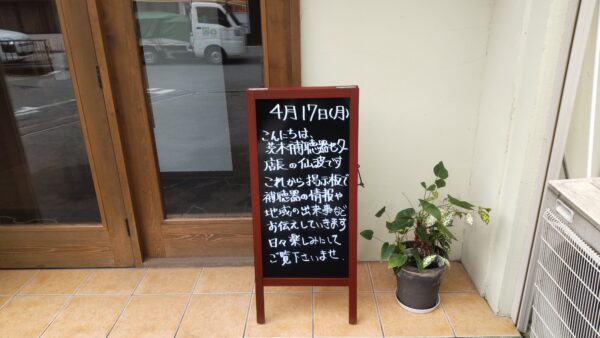 4月17日(月)
こんにちは、
茨木補聴器センター
店長の仙波です
これから掲示板で
補聴器の情報や
地域の出来事など
お伝えしていきます
日々楽しみにして
ご覧下さいませ.